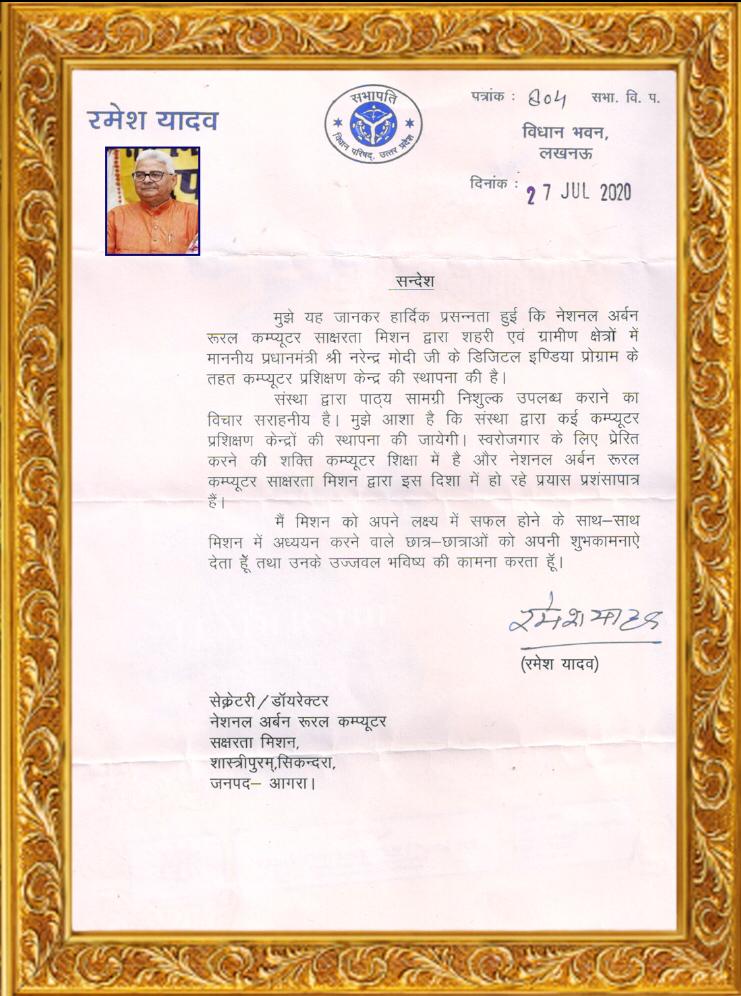 रमेश यादव
सभापति
विधान परिषद्, उत्तर प्रदेश
पत्रांक : 804 सभा. वि. प.
विधान भवन,
लखनऊ
दिनांक : 27 JUL 2020
सन्देश
मुझे यह जानकर हार्दिक प्रसन्नता हुई कि नेशनल अर्बन
रूरल कम्प्यूटर साक्षरता मिशन द्वारा शहरी एवं ग्रामीण क्षेत्रों में
माननीय प्रधानमंत्री श्री नरेन्द्र मोदी जी के डिजिटल इण्डिया प्रोग्राम के
तहत कम्प्यूटर प्रशिक्षण केन्द्र की स्थापना की है।
संस्था द्वारा पाठ्य सामग्री निशुल्क उपलब्ध कराने का
विचार सराहनीय है। मुझे आशा है कि संस्था द्वारा कई कम्प्यूटर
प्रशिक्षण केन्द्रों की स्थापना की जायेगी। स्वरोजगार के लिए प्रेरित
करने की शक्ति कम्प्यूटर शिक्षा में है और नेशनल अर्बन रूरल
कम्प्यूटर साक्षरता मिशन द्वारा इस दिशा में हो रहे प्रयास प्रशंसापात्र
हैं।
मैं मिशन को अपने लक्ष्य में सफल होने के साथ–साथ
मिशन में अध्ययन करने वाले छात्र–छात्राओं को अपनी शुभकामनाऐ
देता हूँ तथा उनके उज्जवल भविष्य की कामना करता हूँ।
रमेश यादव
(रमेश यादव)
सेक्रेटरी/डॉयरेक्टर
नेशनल अर्बन रूरल कम्प्यूटर
सक्षरता मिशन,
शास्त्रीपुरम्,सिकन्दरा,
जनपद– आगरा।